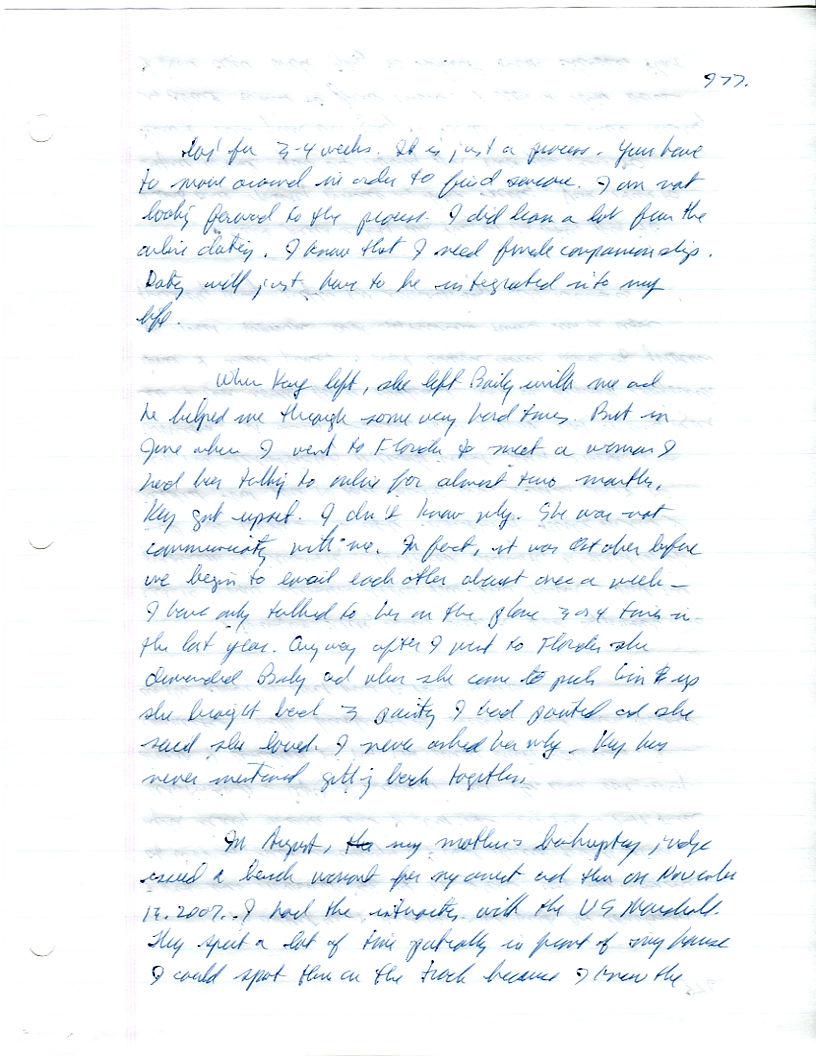 977.
for 3-4 weeks. It is just a process. You have
to move around in order to find someone. I am not
looking forward to the process. I did learn a lot from the
online dating. I know that I need female companionship.
Dating will just have to be integrated into my
life.
When Kay left, she left Baily with me and
he helped me through some very hard times. But in
June when I went to Florida to meet a woman I
had been talking to online for almost two months,
Kay got upset. I don't know why. She was not
communicating with me. In fact, it was October before
we begin to email each other about once a week —
I have only talked to her on the phone 3 or 4 times in
the last year. Anyway after I went to Florida she
demanded Baily and when she came to pick him up
she brought back 3 painting I had painted and she
said she loved. I never asked her why. Kay has
never mentioned getting back together.
In August, my mother's bankruptcy judge
issued a bench warrant for my arrest and then on November
2007. I had the interaction with the US Marshall.
They spent a lot of time in front of my house
I could spot them on the track because I knew the